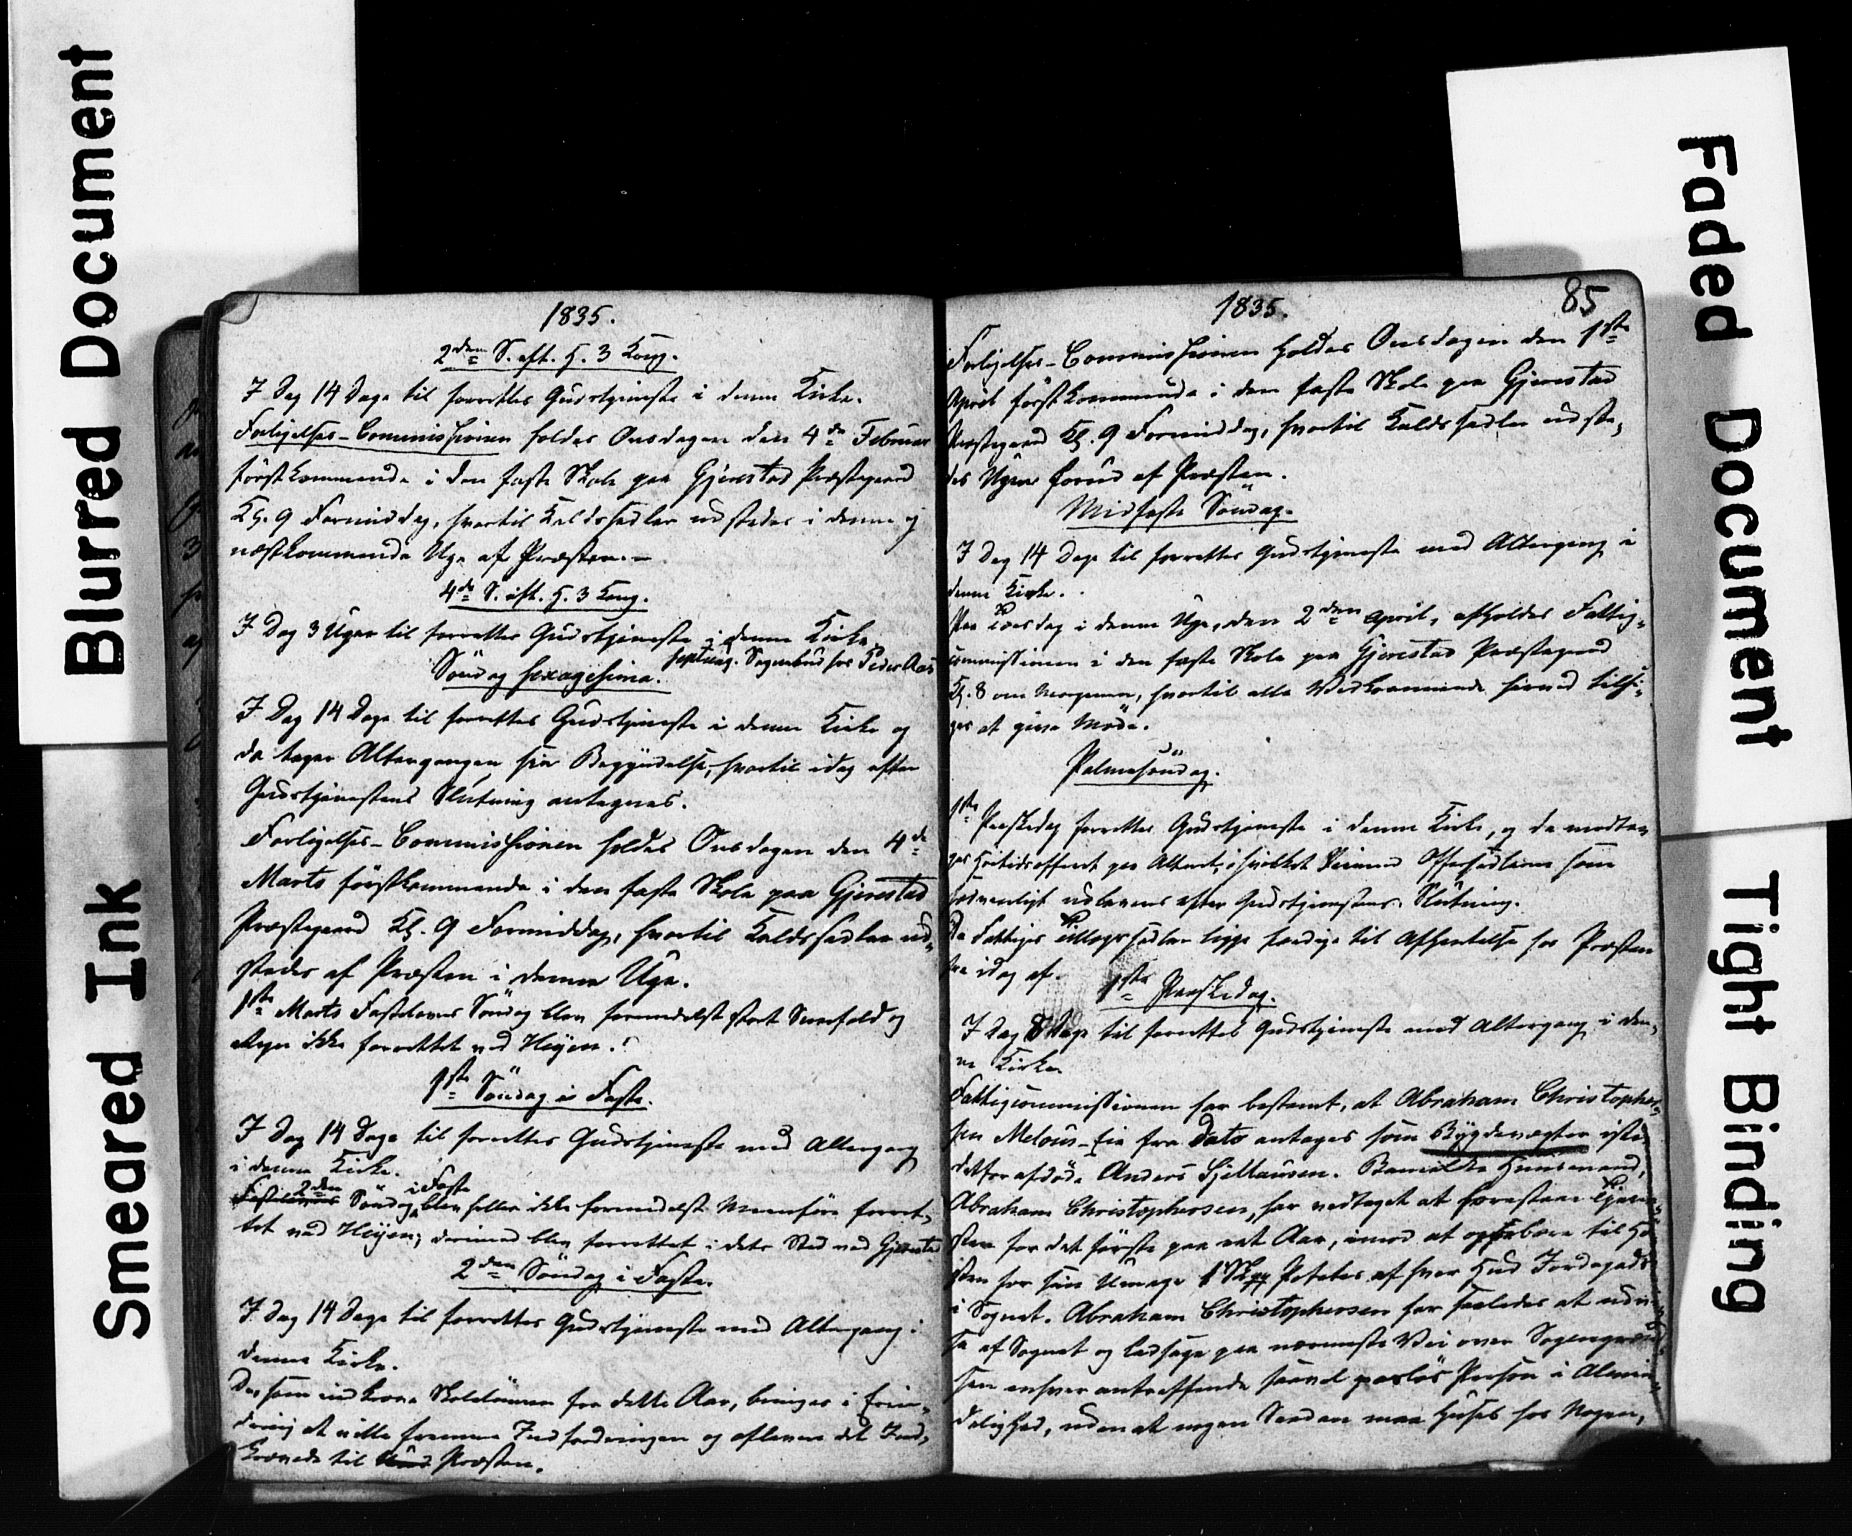 Blurred Document
Smeared Ink
1835.
2den S. eft. H. 3 Kong.
I Dag 14 Dage til forrettes Gudstjeneste i denne Kirke.
Forligelses-Commissionen holdes Onsdagen den 4de Februar
førstkommende i den faste Skole paa Gjerestad Præstegaard
Kl. 9 Formiddag, hvortil Kaldssedler udstedes i denne og
næstkommende Uge af Præsten.-
4de S. eft. H. 3 Kong.
I Dag 3 Uger til forrettes Gudstjeneste i denne Kirke.
septuag. Sognebud hos Peder Aas
Søndag sexagesima.
I Dag 14 Dage til forrettes Gudstjeneste i denne Kirke og
da tager Altergangen sin Begyndelse, hvortil idag efter
Gudstjenestens Slutning antegnes.
Forligelses-Commissionen holdes Onsdagen den 4de
Marts førstkommende i den faste Skole paa Gjerestad
Præstegaard Kl. 9 Formiddag, hvortil Kaldssedler ud-
stedes af Præsten i denne Uge.
1ste Marts Fastelavns Søndag blev formedelst stort Sneefald og
ikke forrettet ved Heyen.
1ste Søndag i Faste.
I Dag 14 Dage til forrettes Gudstjeneste med Altergang
i denne Kirke.
Fastelavns 2den Søndag i Faste blev heller ikke formedelst Meenføre forret-
tet ved Heyen; derimod blev forrettet i dets Sted ved Gjerestad
2den Søndag i Faste.
I Dag 14 Dage til forrettes Gudstjeneste med Altergang i
denne Kirke.
De som indkræve Skolelønnen for dette Aar, bringes i Erin-
dring at ville fremme Indfordringen og aflevere det Ind-
krævede til Præsten.
1835.
85
Forligelses-Commissionen holdes Onsdagen den 1ste
April førstkommende i den faste Skole paa Gjerestad
Præstegaard Kl. 9 Formiddag, hvortil Kaldssedler udste-
des Ugen forud af Præsten.
Midfaste Søndag.
I Dag 14 Dage til forrettes Gudstjeneste med Altergang i
denne Kirke.
Paa Torsdag i denne Uge, den 2den April, afholdes Fattig-
commissionen i den faste Skole paa Gjerestad Præstegaard
Kl. 8 om Morgenen, hvortil alle Vedkommende herved tilsi-
ges at give Møde.
Palmesøndag.
1ste Paaskedag forrettes Gudstjeneste i denne Kirke, og da modta-
ges Høitidsofferet paa Alteret, i hvilket Øiemed Offersedlerne som
sædvanligt udleveres efter Gudstjenestens Slutning.
De Fattiges Tillægssedler ligge færdige til Afhentelse hos Præsten
fra idag af.
1ste Paaskedag.
I Dag 8 Dage til forrettes Gudstjeneste med Altergang i den-
ne Kirke
Fattigcommissionen har bestemt, at Abraham Christopher-
sen Melaas-Eie fra Dato antages som Bygdevægter iste-
detfor afdøde Anders Kjellausen. Bemeldte Huusmand,
Abraham Christophersen, har vedtaget at forestaae Tjene-
sten for det første paa eet Aar, imod at oppebære til Hø-
sten for sin Umage 1 Skp Poteter af hver Hud Jordegods
i Sognet. Abraham Christophersen har saaledes at udvi-
se af Sognet og ledsage paa nærmeste Vei over Sognegræn-
sen enhver antreffende saavel pasløs Person i Almin-
delighed, uden at nogen Saadan maa huses hos Nogen,
Faded Document
Tight Binding